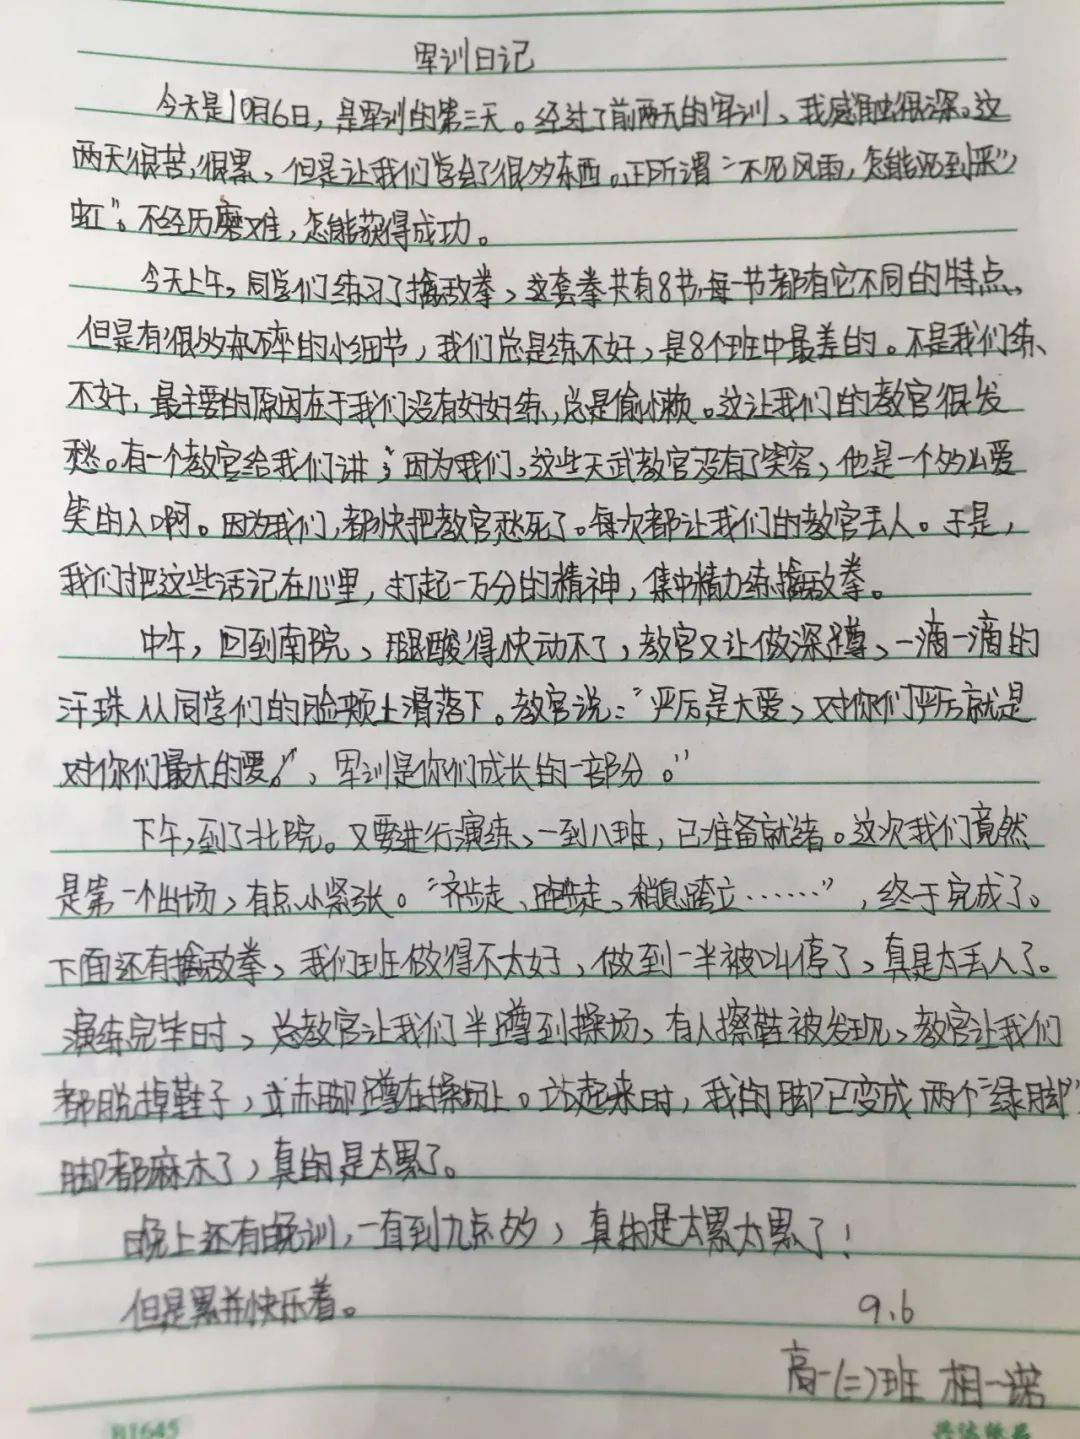 军训日记
今天是10月6日，是军训的第三天。经过了前两天的军训，我感触很深。这
两天很苦，很累，但是让我们学会了很多东西。正所谓“不见风雨，怎能见到彩
虹”。不经历磨难，怎能获得成功。
今天上午，同学们练习了擒敌拳，这套拳共有8节，每一节都有它不同的特点，
但是有很多杂碎的小细节，我们总是练不好，是8个班中最差的。不是我们练
不好，最主要的原因在于我们没有好好练，总是偷懒。这让我们的教官很发
愁。有一个教官给我们讲，因为我们，这些天武教官没有了笑容，他是一个多么爱
笑的人啊。因为我们，都快把教官愁死了。每次都让我们的教官丢人。于是，
我们把这些话记在心里，打起一万分的精神，集中精力练擒敌拳。
中午，回到南院，腿酸得快动不了，教官又让做深蹲，一滴一滴的
汗珠从同学们的脸颊上滑落下。教官说：“严厉是大爱，对你们严厉就是
对你们最大的爱。”，军训是你们成长的一部分。”
下午，到了北院。又要进行演练，一到八班，已准备就绪。这次我们竟然
是第一个出场，有点小紧张。“齐步走、跑步走，稍息跨立……”，终于完成了。
下面还有擒敌拳，我们班做得不太好，做到一半被叫停了，真是太丢人了。
演练完毕时，总教官让我们半蹲到操场，有人擦鞋被发现，教官让我们
都脱掉鞋子，赤脚蹲在操场上。站起来时，我的脚已变成两个“绿脚”
脚都麻木了，真的是太累了。
晚上还有晚训，一直到九点多，真的是太累太累了！
但是累并快乐着。
9.6
高一(二)班 相一诺
H1645